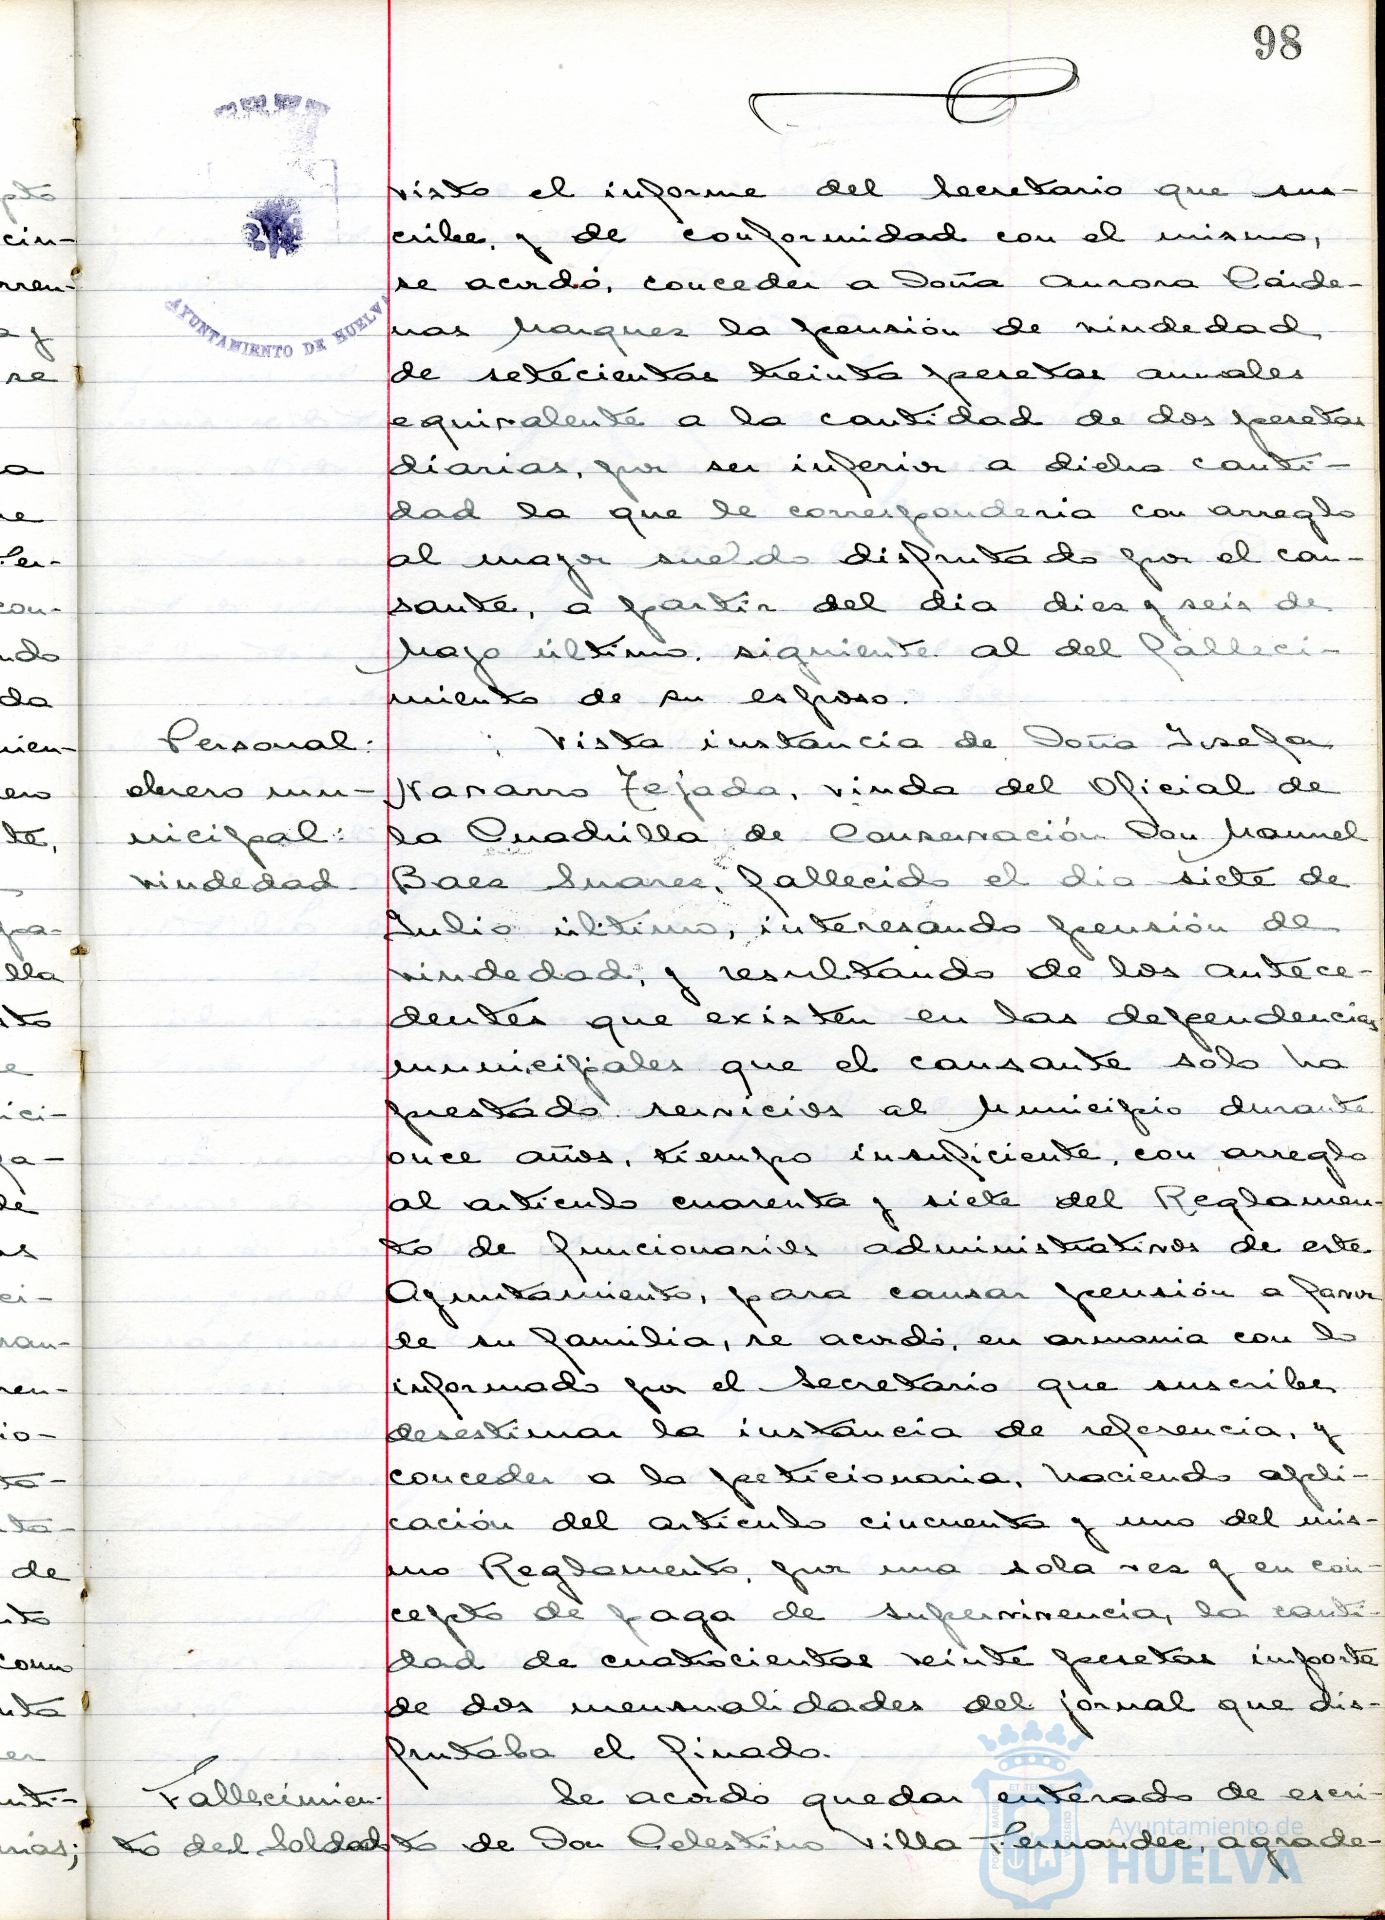 98
AYUNTAMIENTO DE HUELVA
visto el informe del Secretario que sus-
cribe, y de conformidad con el mismo,
se acordó, conceder a Doña Aurora Cárde-
nas Marquez la pensión de viudedad
de setecientas treinta pesetas anuales
equivalente a la cantidad de dos pesetas
diarias, por ser inferior a dicha canti-
dad la que le corresponderia con arreglo
al mayor sueldo disfrutado por el cau-
sante, a partir del dia diez y seis de
Mayo último. siguiente al del falleci-
miento de su esposo.
Personal:
obrero mu-
nicipal:
viudedad.
Vista instancia de Doña Josefa
Navarro Tejada, viuda del Oficial de
la Cuadrilla de Conservación Don Manuel
Baez Suarez, fallecido el dia siete de
Julio último, interesando pensión de
viudedad, y resultando de los antece-
dentes que existen en las dependencias
municipales que el causante sólo ha
prestado servicios al Municipio durante
once años, tiempo insuficiente, con arreglo
al articulo cuarenta y siete del Reglamen-
to de funcionarios administrativos de este
Ayuntamiento, para causar pensión a favor
de su familia, se acordó, en armonia con lo
informado por el Secretario que suscribe,
desestimar la instancia de referencia, y
conceder a la peticionaria, haciendo apli-
cación del articulo cincuenta y uno del mis-
mo Reglamento, por una sola vez y en con-
cepto de paga de supervivencia, la canti-
dad de cuatrocientas veinte pesetas importe
de dos mensualidades del jornal que dis-
frutaba el finado.
Fallecimien-
to del Soldado
Se acordó quedar enterado de escri-
to de Don Celestino Villa Fernandez, agrade-
Ayuntamiento de
HUELVA